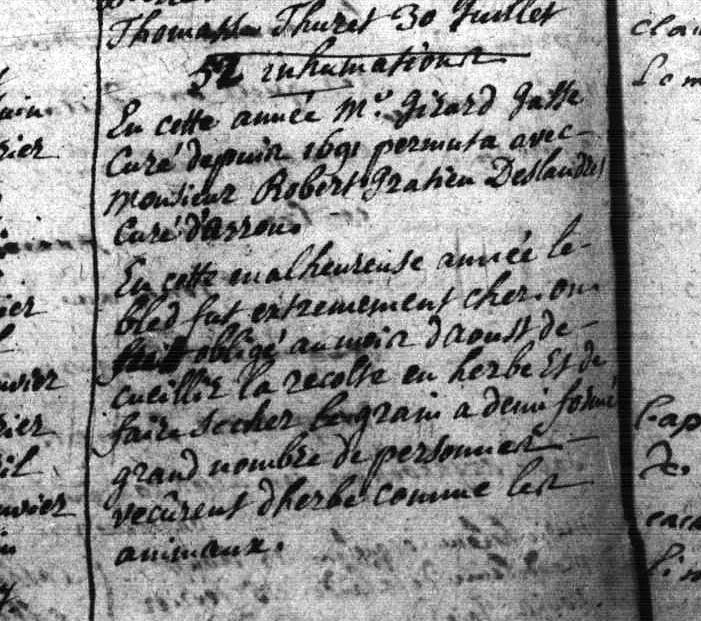 Thomasse Thuret 30 Juillet
52 inhumations
En cette année Mr. Girard Gasse
Curé depuis 1691 permuta avec
monsieur Robert Gratien Deslandes
Curé d'arrou.
En cette malheureuse année le
bled fut extremement cher. on
fut obligé au mois daoust de
cueillir la recolte en herbe Et de
faire secher le grain a demi formé
grand nombre de personnes
vecûrent dherbe comme les
animaux.
rier
ier
nvier
rier
il
nvier